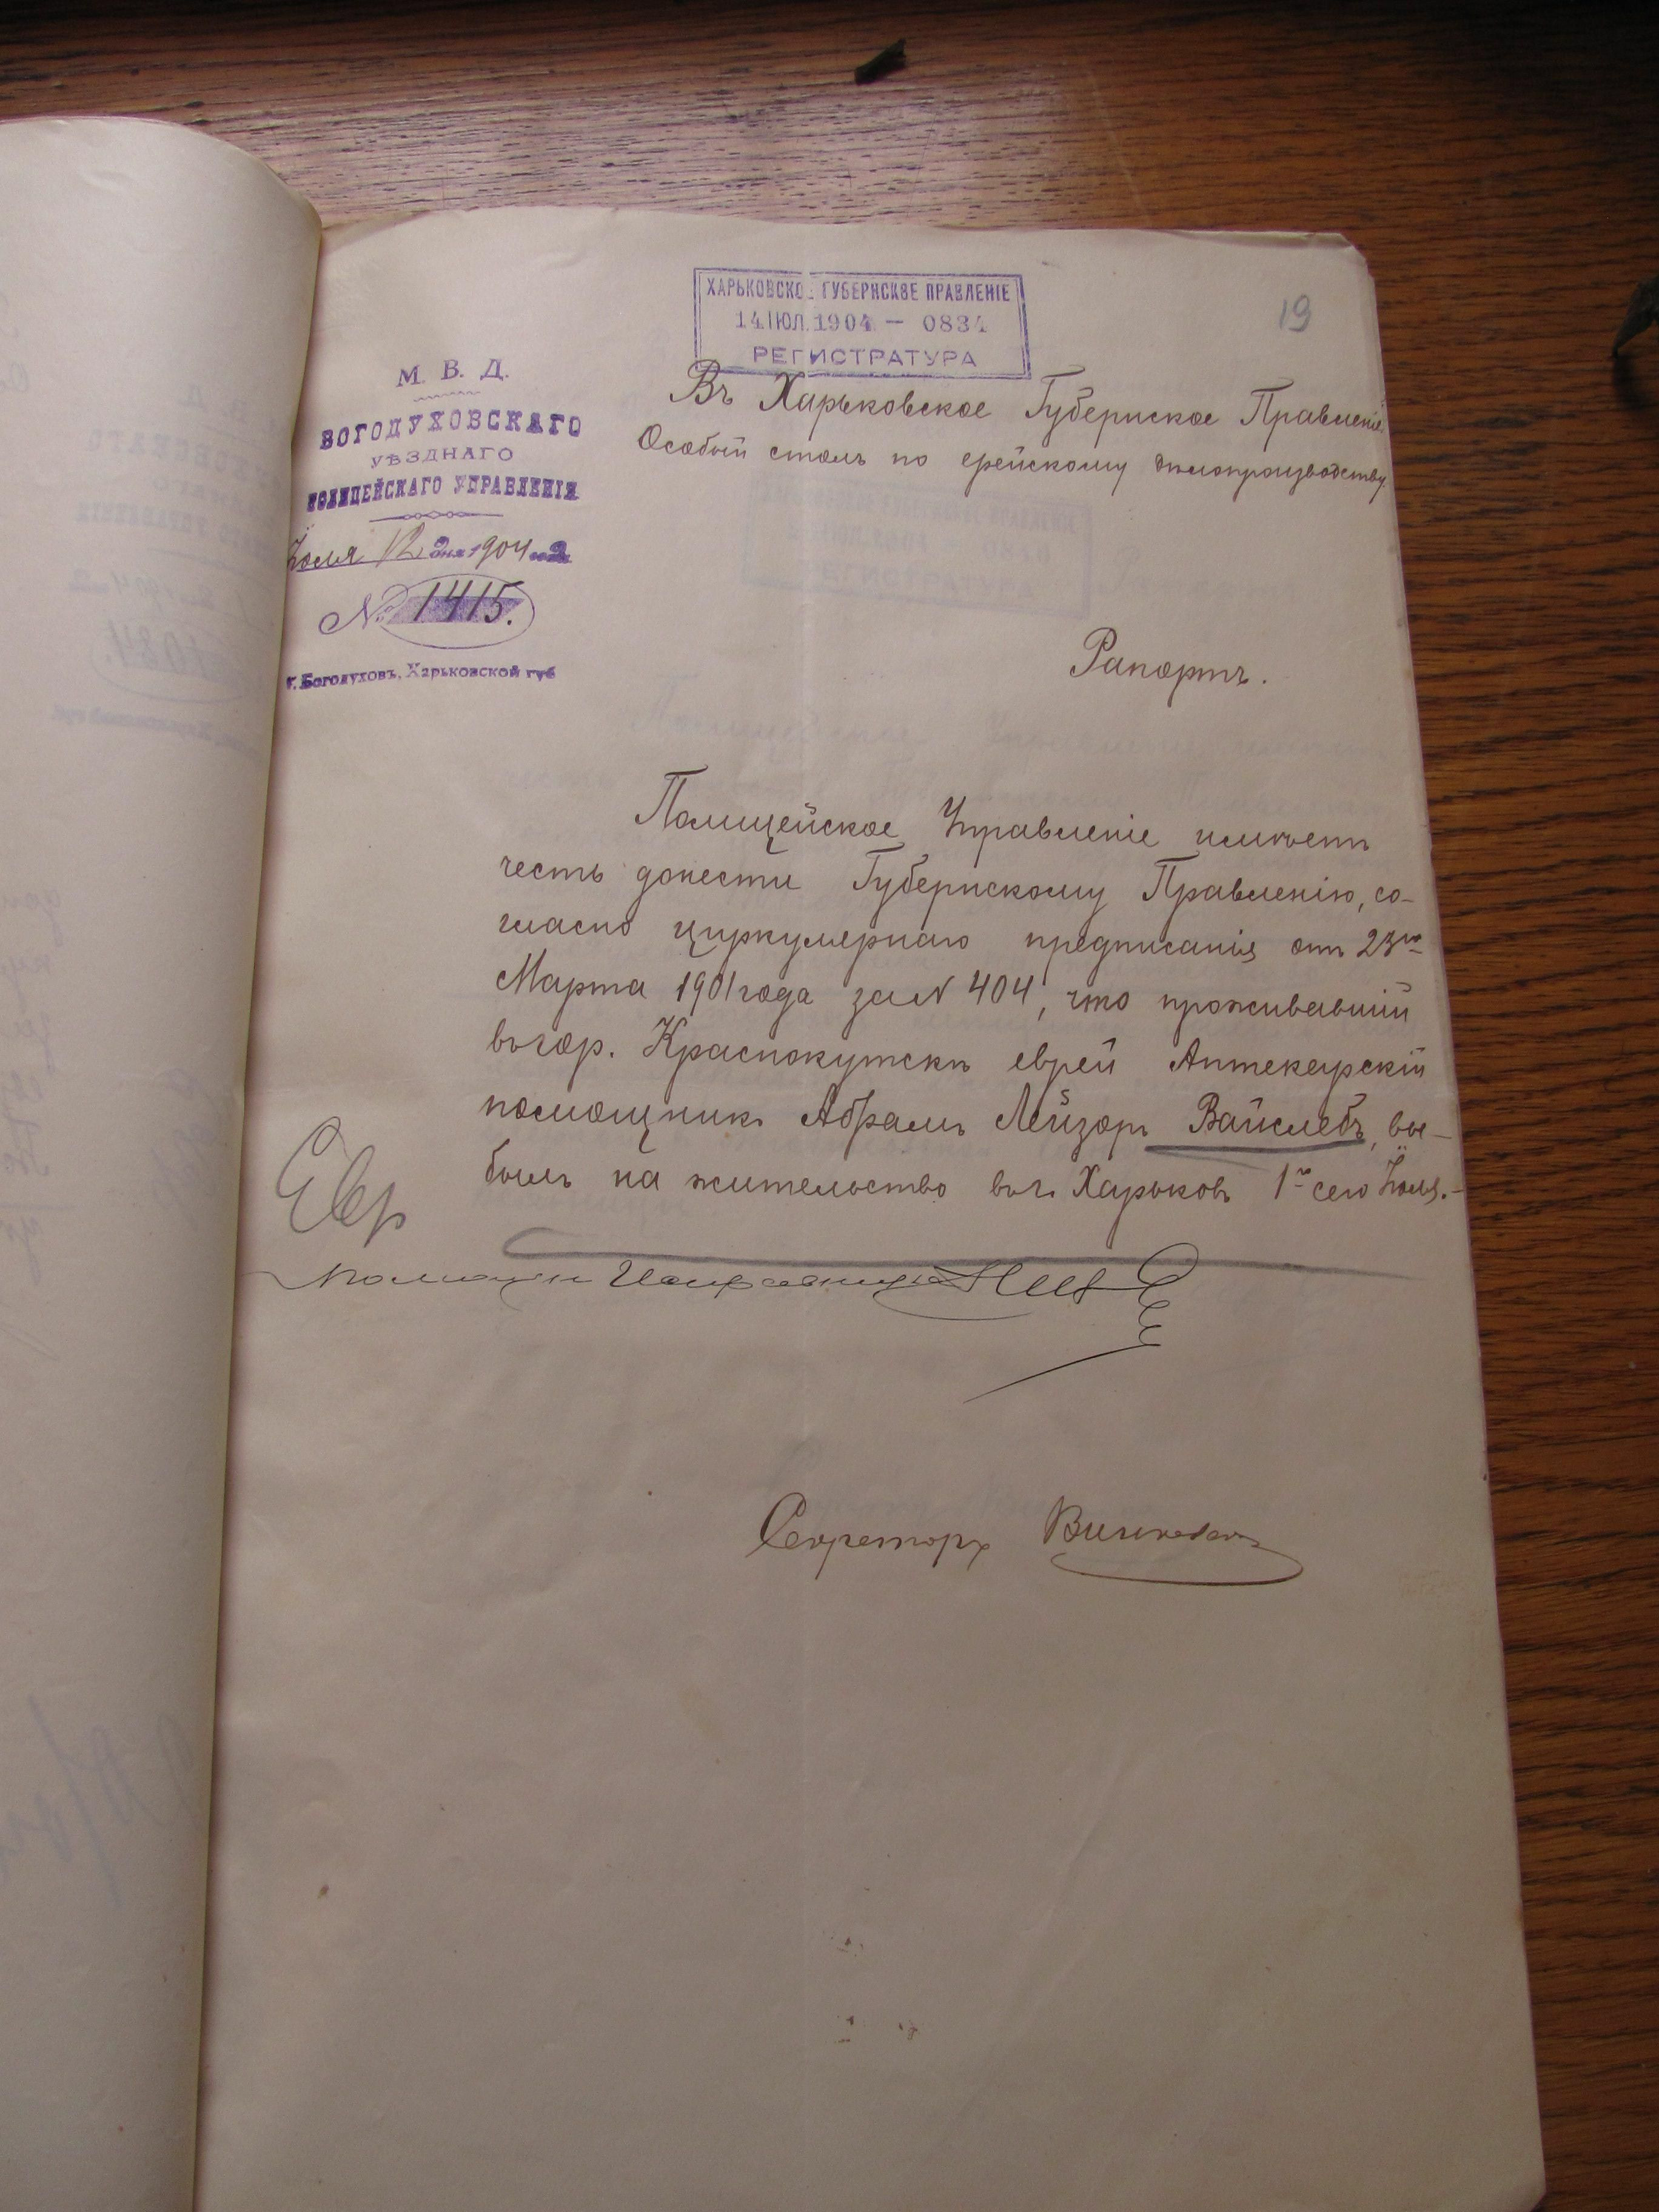 ХАРЬКОВСКОЕ ГУБЕРНСКОЕ ПРАВЛЕНІЕ
14 ІЮЛ. 1904 — 0834
РЕГИСТРАТУРА
19
М. В. Д.
БОГОДУХОВСКАГО
УѢЗДНАГО
ПОЛИЦЕЙСКАГО УПРАВЛЕНІЯ
Іюля 12 дня 1904 года
№ 1415.
г. Богодуховъ, Харьковской губ
Въ Харьковское Губернское Правленіе
Особый столъ по ерейскому дѣлопроизводству.
Рапортъ.
Полицейское Управленіе имѣетъ
честь донести Губернскому Правленію, со-
гласно циркулярнаго предписанія отъ 23го
Марта 1901 года за N 404, что проживавшій
въ гор. Краснокутскѣ еврей Аптекарскій
помощникъ Абрамъ Лейзоръ Вайслебъ, вы-
былъ на жительство въ г. Харьковъ 1го сего Іюля.-
Евр
Помощн Исправника
Секретарь